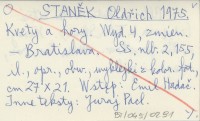 STANĚK Oldřich 1975.
Kvety a hory. Wyd 4, zmien.
– Bratislava. SS. nlb. 2, 155,
il., opr., obw., wyklejki z kolor. fot.,
cm 27 x 21. Wstęp: Emil Hadač.
Inne teksty: Juraj Pacl.